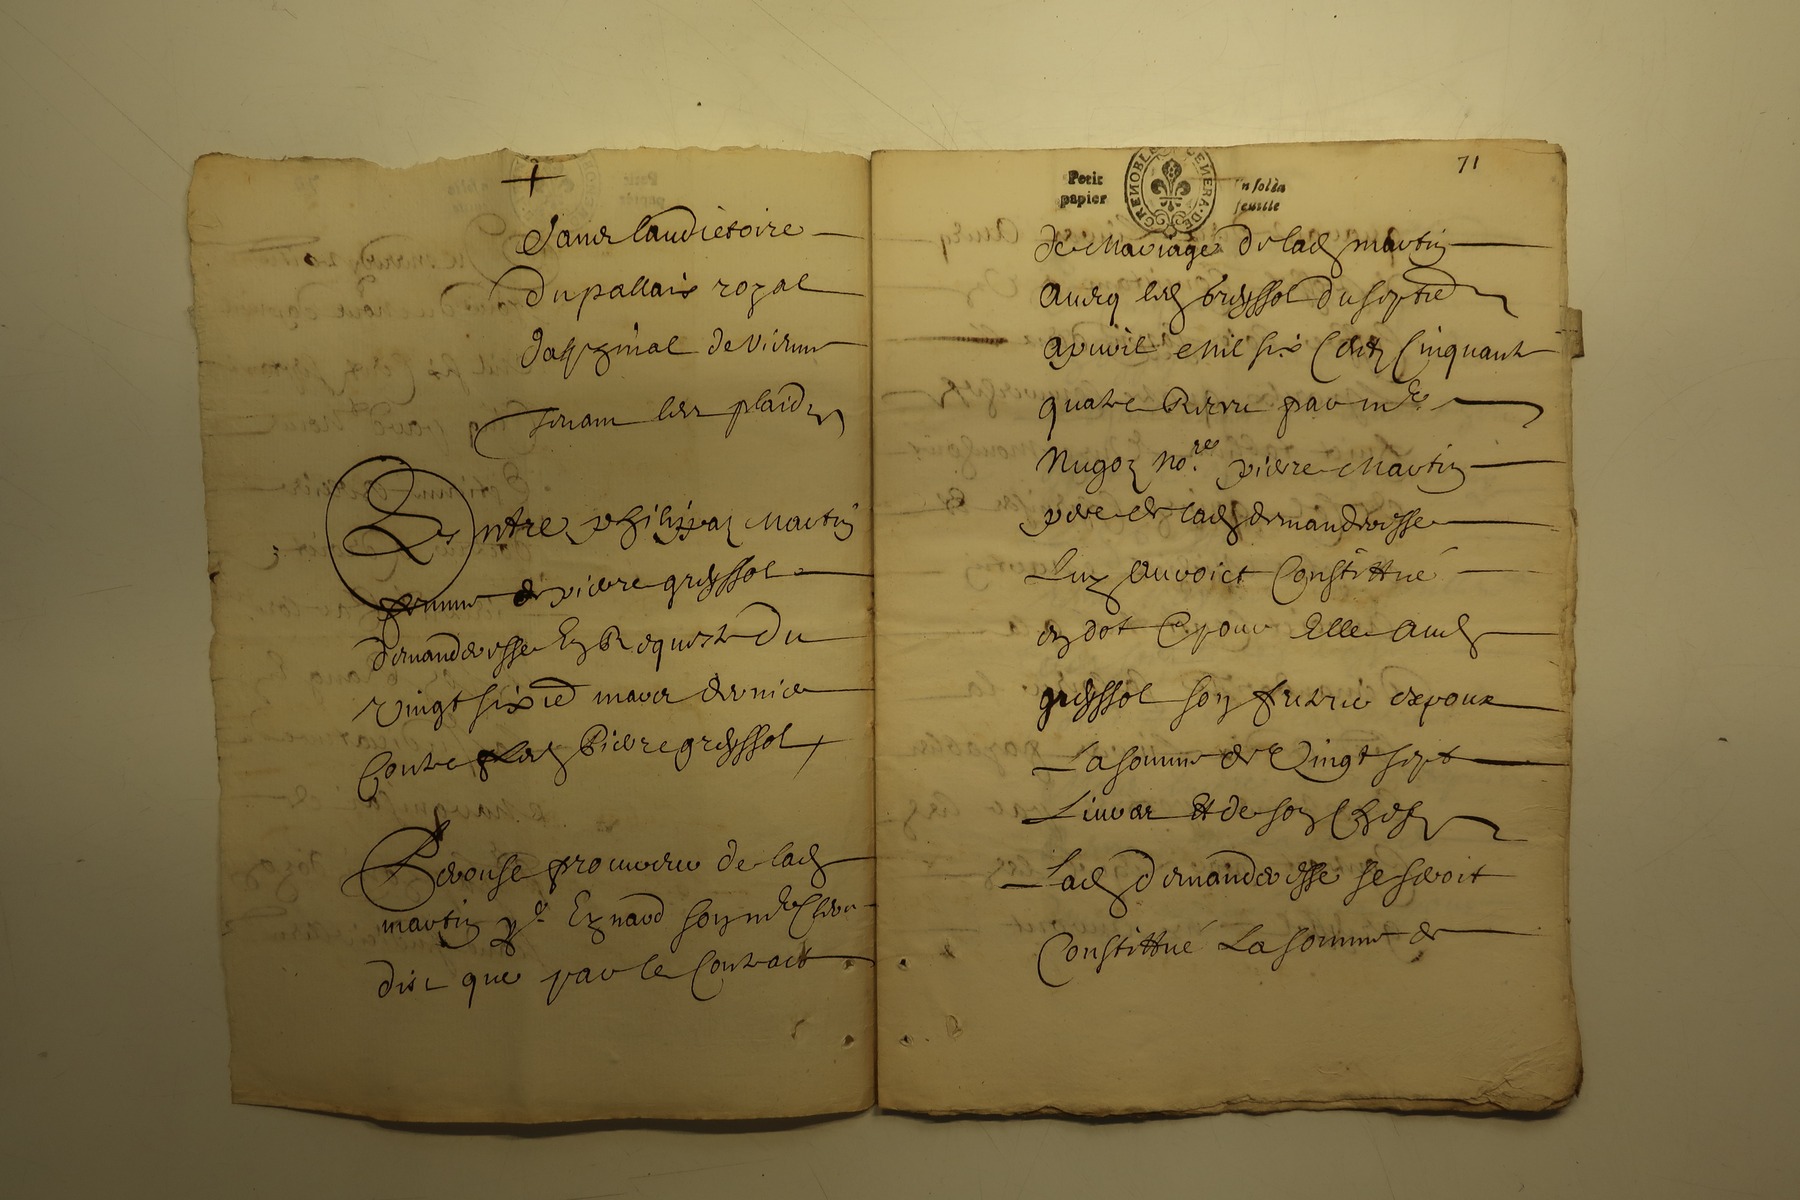 +
Dans laudictoire
du pallais royal
dalphinal de Vienne
tenant les plaids
Entre Philippa Martin
femme de pierre greyssol
demanderesse En Requeste du
vingt sixie mars dernier
Contre led Pierre greyssol
de lad
martin Eynard son
dict que par le Contract
Petit papier
GRENOBLE GENERA DE
In folio feuille
71
de Mariage de lad martin
avecq led greyssol du septie
apvril Mil six Cents Cinquante
quatre Receu par me
Nugoz nore pierre Martin
pere de lad demanderesse
Luy auroict Constittué
en dot Et pour Elle aud
greyssol son futur espoux
La somme de Vingt sept
Livres Et de son Chef
Lad demanderesse se seroit
Constittué La somme de